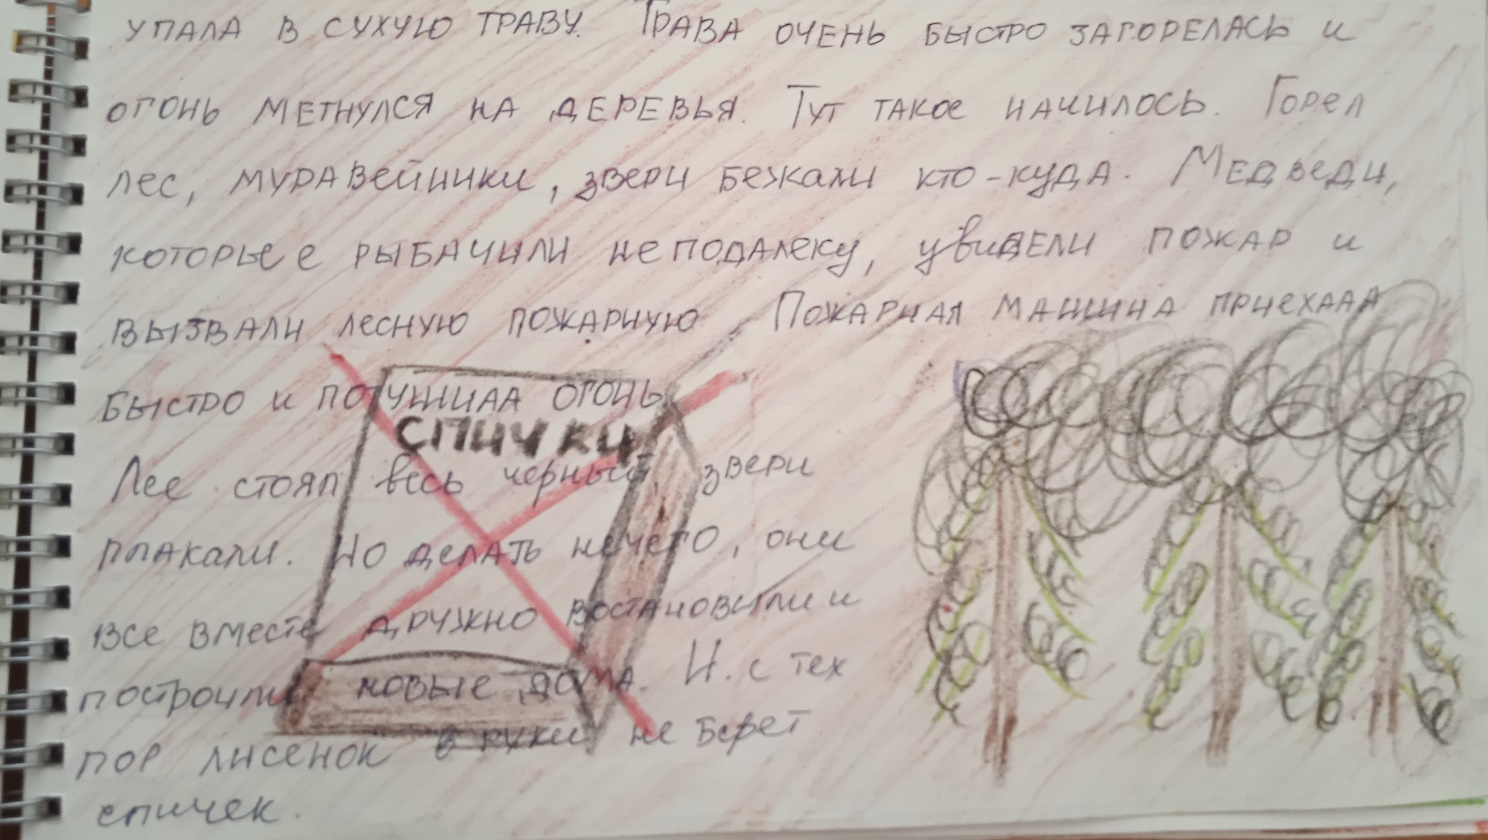 УПАЛА В СУХУЮ ТРАВУ. ТРАВА ОЧЕНЬ БЫСТРО ЗАГОРЕЛАСЬ И
ОГОНЬ МЕТНУЛСЯ НА ДЕРЕВЬЯ. ТУТ ТАКОЕ НАЧИЛОСЬ. ГОРЕЛ
ЛЕС, МУРАВЕЙНИКИ, ЗВЕРИ БЕЖАЛИ КТО-КУДА. МЕДВЕДИ,
КОТОРЫЕ РЫБАЧИЛИ НЕПОДАЛЕКУ, УВИДЕЛИ ПОЖАР И
ВЫЗВАЛИ ЛЕСНУЮ ПОЖАРНУЮ. ПОЖАРНАЯ МАШИНА ПРИЕХАЛА
БЫСТРО И ПОТУШИЛА ОГОНЬ.
СПИЧКИ
ЛЕС СТОЯЛ ВЕСЬ ЧЕРНЫЙ ЗВЕРИ
ПЛАКАЛИ. НО ДЕЛАТЬ НЕЧЕГО, ОНИ
ВСЕ ВМЕСТЕ ДРУЖНО ВОСТАНОВИЛИ И
ПОСТРОИЛИ НОВЫЕ ДОМА. И. С ТЕХ
ПОР ЛИСЕНОК В РУКИ НЕ БЕРЕТ
СПИЧЕК.